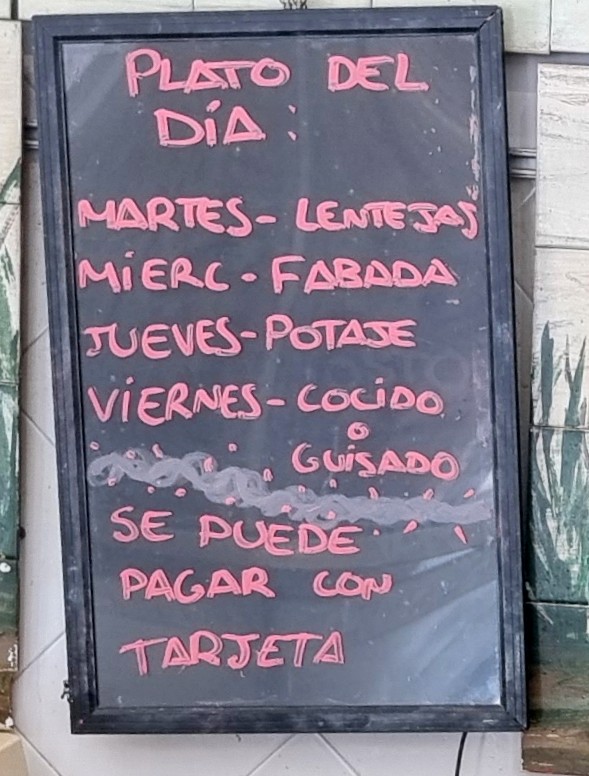 PLATO DEL
DÍA:
MARTES- LENTEJAS
MIERC- FABADA
JUEVES-POTAJE
VIERNES- COCIDO
O
GUISADO
SE PUEDE
PAGAR CON
TARJETA